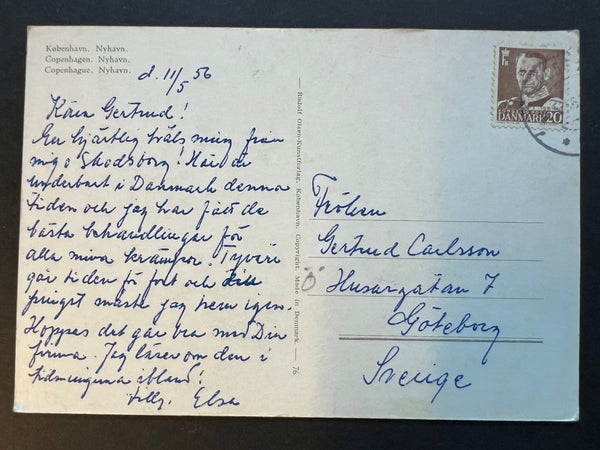 København. Nyhavn.
Copenhagen. Nyhavn.
Copenhague. Nyhavn.
d. 11/5 56
Kära Gertrud!
En hjärtlig hälsning från
mig o Skodsborg! Här är
underbart i Danmark denna
tiden och jag har fått de
bästa behandlingar för
alla mina krämpor. Tyvärr
går tiden för fort och till
pingst måste jag hem igen.
Hoppas det går bra med Din
firma. Jag läser om den i
tidningarna ibland!
Tillg. Elsa
Rudolf Olsen-Kunstforlag. København. Copyright. Made in Denmark. — 76
DANMARK 20
Fröken
Gertrud Carlsson
Husargatan 7
Göteborg
Sverige
Ö